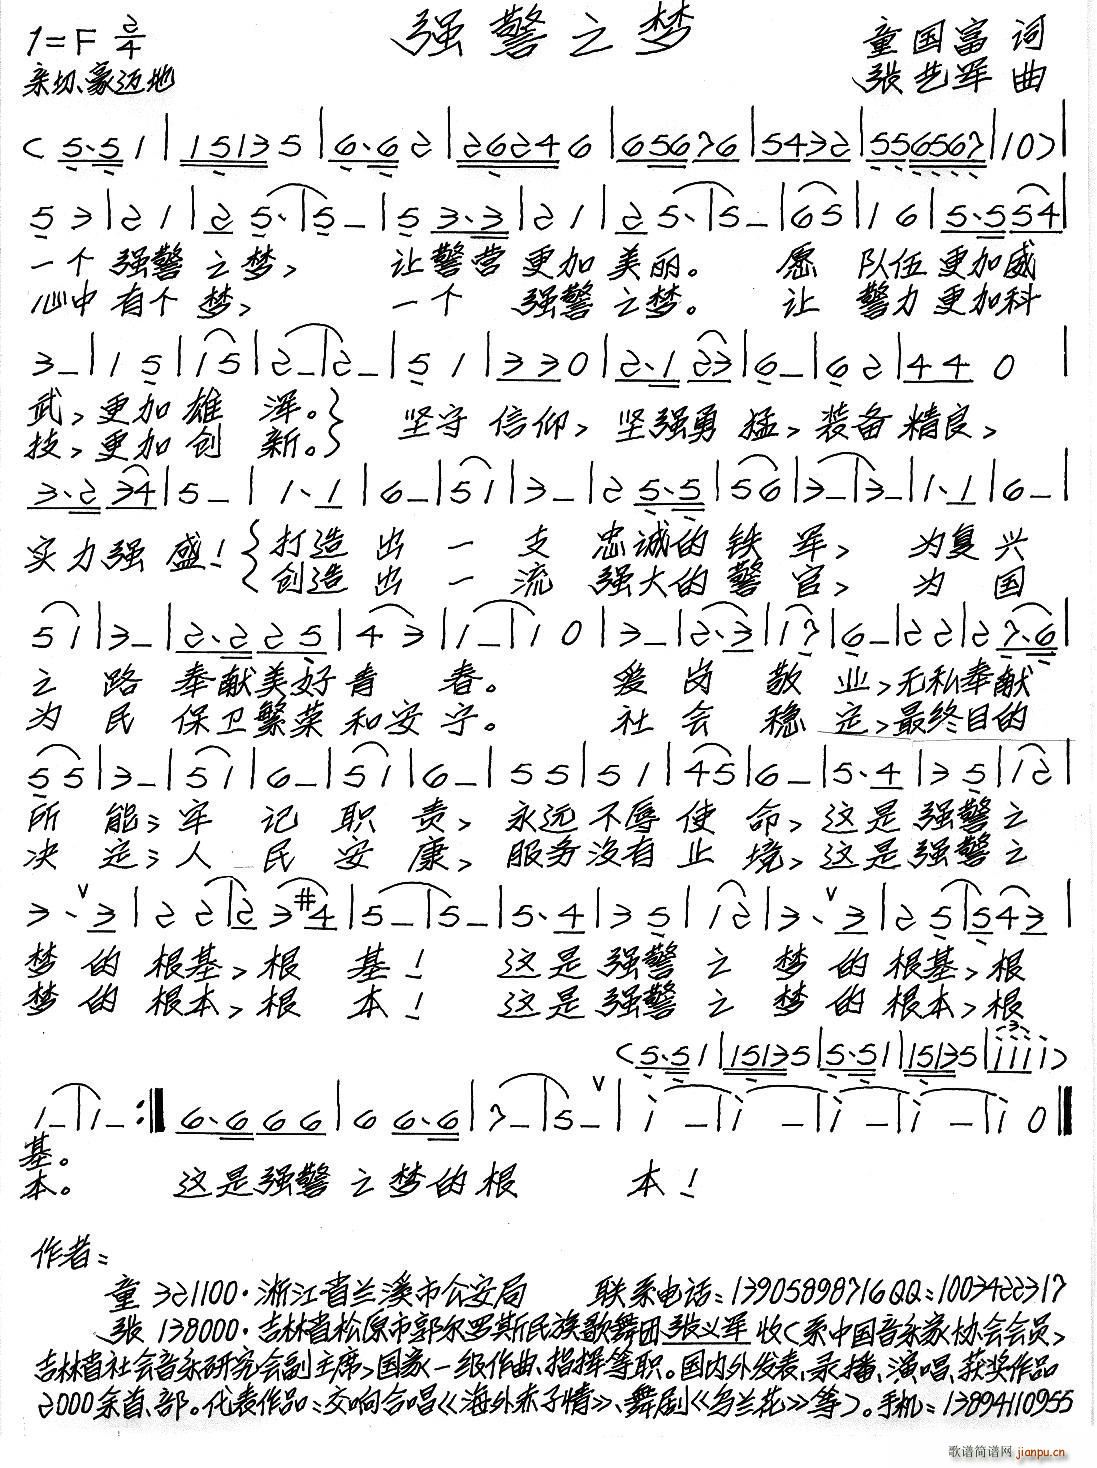 强警之梦
1=F 2/4
童国富 词
亲切、豪迈地
张艺军 曲
( 5·5 1 | 1513 5 | 6·6 2 | 2624 6 | 656 76 | 5432 | 55 6567 | 1 0 ) |
5 3 | 2 1 | 2 5· | 5 – | 5 3·3 | 2 1 | 2 5· | 5 – | 6 5 | 1 6 | 5·5 54 |
一个 强警 之梦, 让警营 更加 美丽。 愿 队伍 更加威
心中 有个 梦, 一个 强警 之梦。 让 警力 更加科
3 – | 1 5 | 1 5 | 2 – | 2 – | 5 1 | 3 3 0 | 2·1 23 | 6 – | 6 2 | 4 4 0 |
武, 更加 雄 浑。} 坚守 信仰, 坚强勇 猛, 装备 精良,
技, 更加 创 新。}
3·2 34 | 5 – | 1·1 | 6 – | 5 1 | 3 – | 2 5·5 | 5 6 | 3 – | 3 – | 1·1 | 6 – |
实力强 盛! {打造 出 一 支 忠诚的 铁 军, 为复 兴
{创造 出 一 流 强大的 警 官, 为 国
5 1 | 3 – | 2·2 2 5 | 4 3 | 1 – | 1 0 | 3 – | 2·3 | 1 7 | 6 – | 2 2 | 2 7·6 |
之 路 奉献美好 青 春。 爱 岗 敬 业, 无私奉献
为 民 保卫繁荣 和安 宁。 社 会 稳 定, 最终目的
5 5 | 3 – | 5 1 | 6 – | 5 1 | 6 – | 5 5 | 5 1 | 4 5 | 6 – | 5·4 | 3 5 | 1 2 |
所 能; 牢 记 职 责, 永远 不辱 使 命, 这是 强警 之
决 定; 人 民 安 康, 服务 没有 止 境, 这是 强警 之
3·∨3 | 2 2 | 2 3 #4 | 5 – | 5 – | 5·4 | 3 5 | 1 2 | 3·∨3 | 2 5 | 5 4 3 |
梦 的 根基, 根 基! 这是 强警 之 梦 的 根基, 根
梦 的 根本, 根 本! 这是 强警 之 梦 的 根本, 根
( 5·5 1 | 1513 5 | 5·5 1 | 1513 5 | 1 1 1 1 )
1 – | 1 – :‖ 6·6 6 6 | 6 6·6 | 7 – | 5 – ∨ | i – | i – | i – | i – | i 0 ‖
基。
本。 这是强警 之梦的 根 本!
作者:
童 321100·浙江省兰溪市公安局 联系电话:13905898716 QQ:1003422317
张 138000·吉林省松原市郭尔罗斯民族歌舞团张义军收(系中国音乐家协会会员,
吉林省社会音乐研究会副主席,国家一级作曲、指挥等职。国内外发表、录播、演唱、获奖作品
2000余首、部。代表作品:交响合唱《海外赤子情》、舞剧《乌兰花》等)。手机:13894110955
歌谱简谱网 jianpu.cn